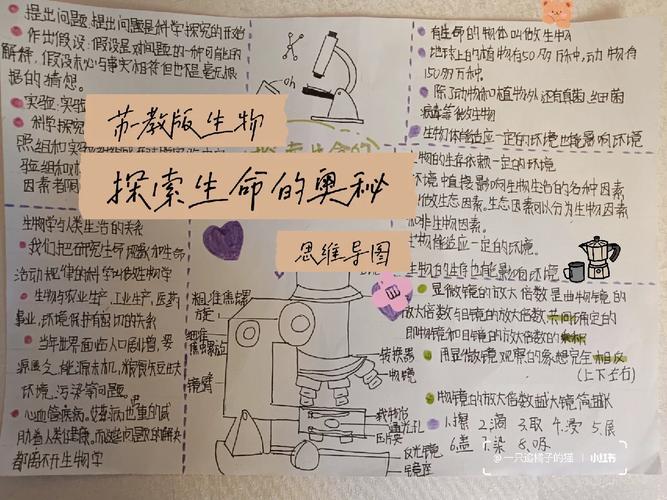 提出问题:提出问题是科学探究的开始
作出假设:假设是对问题的一种可能的
解释,假设未必与事实相符但也是毫无根
据的猜想。
实验:实验
科学探究
照组和实
验组和
因素者
苏教版生物
探索生命的奥秘
思维导图
有生命的物体叫做生物
地球上的植物有50多万种,动物有
150多万种。
除了动物和植物外还有真菌、细菌
病毒等微生物
生物体能适应一定的环境也能影响环境
物的生存依赖一定的环境
环境中直接影响生物生活的各种因素
做生态因素。生态因素可以分为生物因素
和非生物因素。
生物能适应一定的环境。
生物的生存也能影响环境
生物学与人类生活的关系
我们把研究生命现象和生命
活动规律的科学叫做生物学
生物与农业生产、工业生产、医药
事业,环境保护有密切的关系
当今世界面临人口剧增,资
源匮乏、能源危机,粮食不足
环境污染等问题。
心血管疾病。
都离不开生物学
粗准焦螺
旋
细准
焦螺旋
镜臂
转换器
物镜
载物台
通光孔
压片夹
反光镜
镜座
显微镜的放大倍数是由物镜的
放大倍数与目镜的放大倍数共同确定的
即物镜和目镜的放大倍数的乘积
用显微镜观察的象想完全相反
(上下左右)
物镜的放大倍数越大镜筒越长
1.擦 2.滴 3.取 4.浸 5.展
6.盖 7.染 8.吸
@一只追橘子的猫 | 小红书